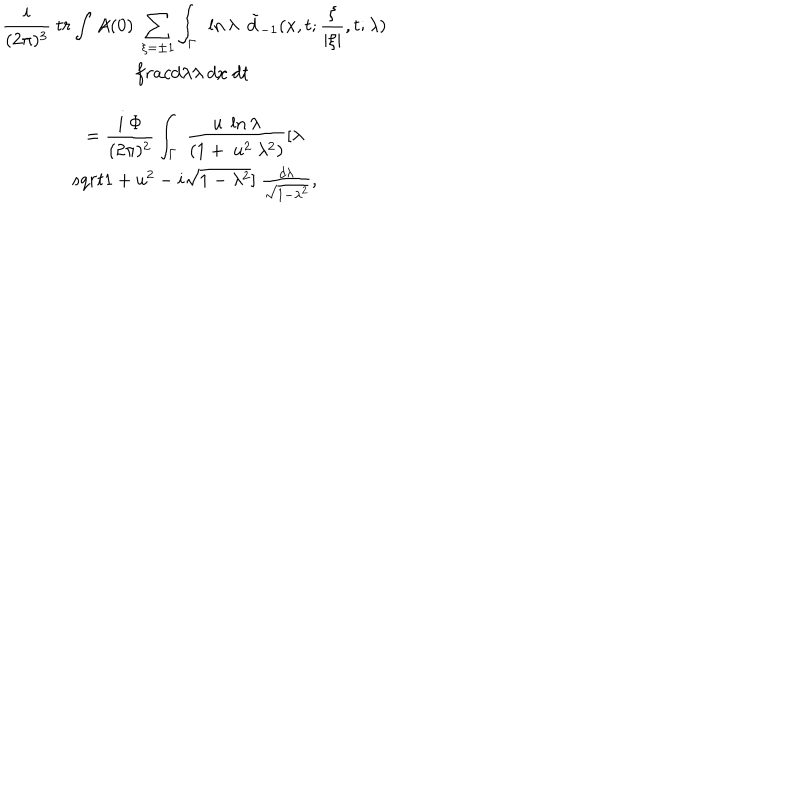 \frac{i}{(2\pi)^3} tr \int \not{A}(0) \sum_{\xi=\pm 1} \int_\Gamma \ln\lambda \tilde{d}_{-1}(x,t;\frac{\xi}{|\xi|},t;\lambda)
fracdλλ dx dt
= \frac{i \Phi}{(2\pi)^2} \int_\Gamma \frac{u \ln\lambda}{(1+ u^2 \lambda^2)} [\lambda
sqrt1 + u^2 - i\sqrt{1-\lambda^2}] \frac{d\lambda}{\sqrt{1-\lambda^2}},